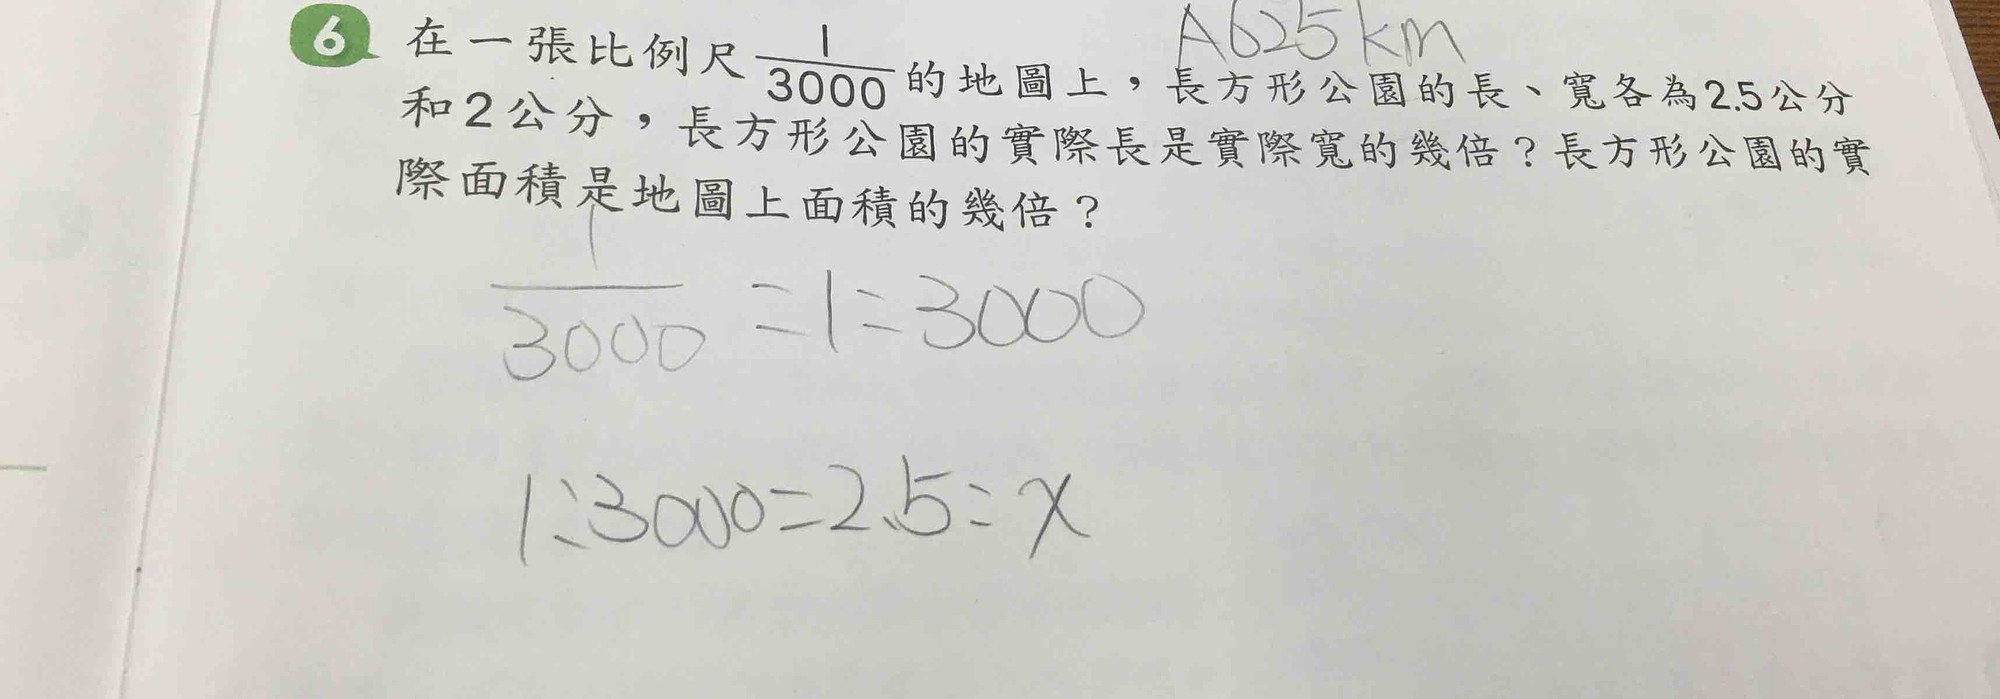 A625km
6 在一張比例尺 1/3000 的地圖上，長方形公園的長、寬各為2.5公分
和2公分，長方形公園的實際長是實際寬的幾倍？長方形公園的實
際面積是地圖上面積的幾倍？
1/3000 =1:3000
1:3000=2.5:x